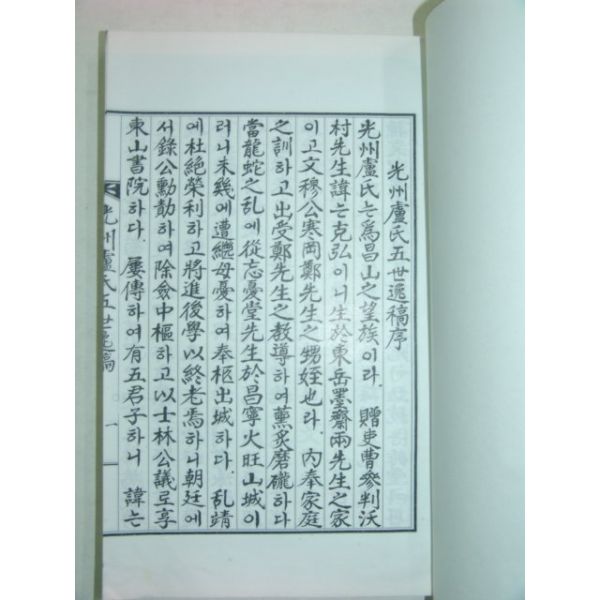 光州盧氏五世逸稿序
光州盧氏는爲昌山之望族이라 贈吏曹參判沃
村先生諱는克弘이니生於東岳墨齋兩先生之家
이고文穆公寒岡鄭先生之甥姪也라 內奉家庭
之訓하고出受鄭先生之教導하여薰炙磨礲하다
當龍蛇之乱에從忘憂堂先生於昌寧火旺山城이
러니未幾에遭繼母憂하여奉柩出城하다 乱靖
에杜絶榮利하고將進後學以終老焉하니朝廷에
서錄公勳勣하여除僉中樞하고以士林公議로享
東山書院하다 屢傳하여有五君子하니 諱는
光州盧氏五世逸稿 一